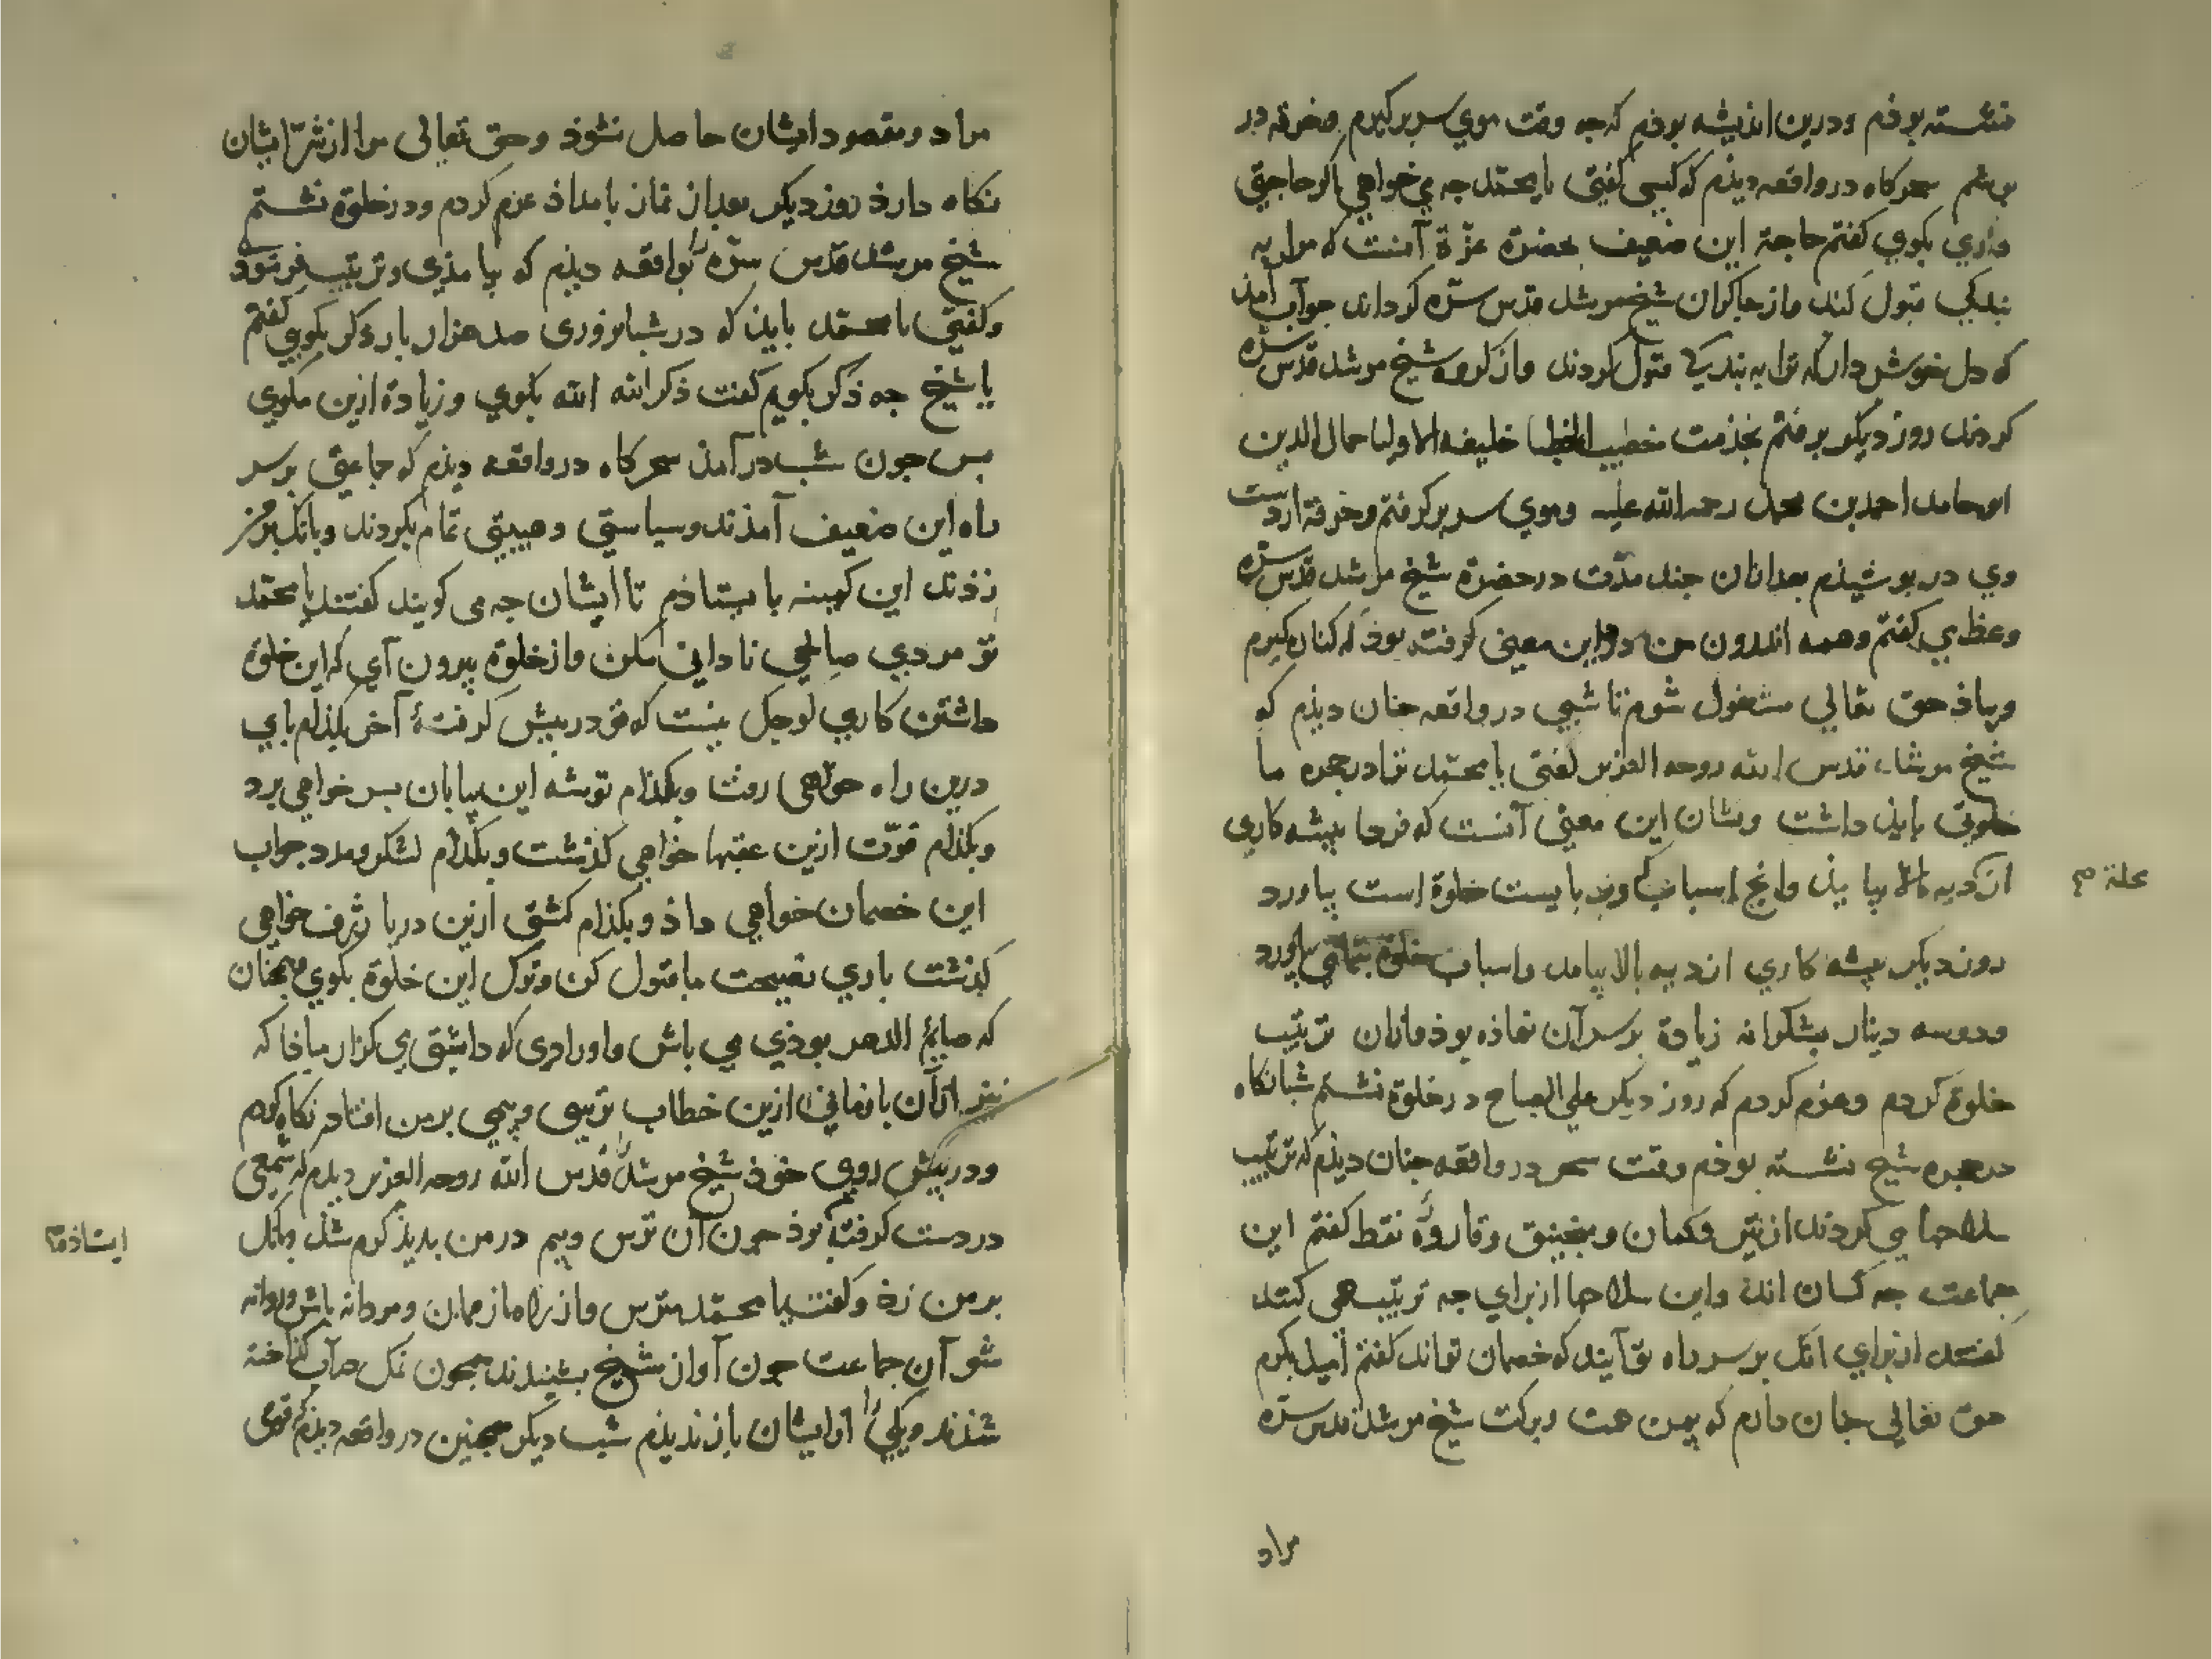 نشسته بوذم ودرین اندیشه بوذم که جه وقت موی سر برکیرم وخرقه در
بوشم سحرکاه در واقعه دیذم که کسی کفتی یا محمّد جه می خواهی اکر حاجتی
داری بکوی کفتم حاجة این ضعیف بحضرة عزّة آنست که مرا به
بندکی قبول کند واز جاکران شیخ مرشد قدس سرّه کرداند جواب آمذ
که دل خوش دار که ترا به بندکی قبول کردند واز کروه شیخ مرشد قدس سرّه
کردند روز دیکر برفتم بخذمت خطیب الخطبا خلیفه الاولیا جمال الدین
ابو حامد احمد بن محمد رحمه الله علیه وموی سر برکرفتم وخرقه از دست
وی در بوشیذم بعد ازان جند مدّت در حضرة شیخ مرشد قدس سرّه
وعظ می کفتم وهمه اندرون من درین معنی کرفته بوذ که کنار کیرم
وبیاذ حق تعالی مشغول شوم تا شبی در واقعه جنان دیذم که
شیخ مرشد قدس الله روحه العزیز کفتی یا محمّد ترا در حجره ما
خلوتی بایذ داشت ونشان این معنی آنست که فردا بیشه کاری
از دیه بالا بیایذ وانج اسباب وبایست خلوة است بیاورد
روز دیکر بیشه کاری از دیه بالا بیامد واسباب خلوة بتمامی بیاورد
ودوسه دینار بشکرانه زیادة برسر آن نهاذه بوذ وازان ترتیب
خلوة کردم وعزم کردم که روز دیکر علی الصباح در خلوة نشینم شبانکاه
در حجره شیخ نشسته بوذم وقت سحر در واقعه جنان دیذم که ترتیب
سلاحها می کردند از تیر وکمان ومنجنیق وقاروره نفط کفتم این
جماعت جه کسان اند واین سلاحها از برای جه ترتیب می کنند
کفتند از برای آنک برسر راه تو آیند که خصمان تو اند کفتم امید بکرم
حق تعالی جنان دارم که بیمن همت وبرکت شیخ مرشد قدس سرّه
مراد
مراد ومقصود ایشان حاصل نشوذ وحق تعالی مرا از شرّ ایشان
نکاه دارذ روز دیکر بعد از نماز بامداذ عزم کردم ودر خلوة نشستم
شیخ مرشد قدس سرّه را بواقعه دیذم که بیامذی وترتیب فرموذی
وکفتی یا محمّد بایذ که در شبانروزی صد هزار بار ذکر بکویی کفتم
یا شیخ جه ذکر بکویم کفت ذکر الله الله بکوی وزیادة ازین مکوی
بس جون شب در آمذ سحرکاه در واقعه دیذم که جماعتی برسر
راه این ضعیف آمذند وسیاستی وهیبتی تمام بکردند وبانک بر من
زذند این کمینه بایستاذم تا ایشان جه می کویند کفتند یا محمّد
تو مردی صالحی نادانی مکن واز خلوة بیرون آی که این خلوة
داشتن کاری کوجک نیست که تو در بیش کرفتهٔ آخر بکذام بای
درین راه خواهی رفت وبکذام توشه این بیابان بسر خواهی برد
وبکذام قوّت ازین عقبها خواهی کذشت وبکذام لشکر ومدد جواب
این خصمان خواهی داذ وبکذام کشتی ازین دریا ژرف خواهی
کذشت باری نصیحت ما قبول کن وترک این خلوة بکوی وهمجنان
که صایم الدهر بوذی می باش واورادی که داشتی می کزار مباذا که
بتر از آن بازمانی ازین خطاب ترسی وبیمی بر من افتاد نکاه کردم
ودر بیش روی خوذ شیخ مرشد را قدس الله روحه العزیز دیدم که شمعی
در دست کرفته بوذ جون آن ترس وبیم در من بدیذ کرم شد وبانک
بر من زذ وکفت یا محمّد مترس واز راه باز ممان ومردانه باش وروانه
شو آن جماعت جون آواز شیخ بشنیدند همجون نمک در آب کذاخته
شذند ویکی را از ایشان باز ندیذم شب دیکر همجنین در واقعه دیذم که قومی